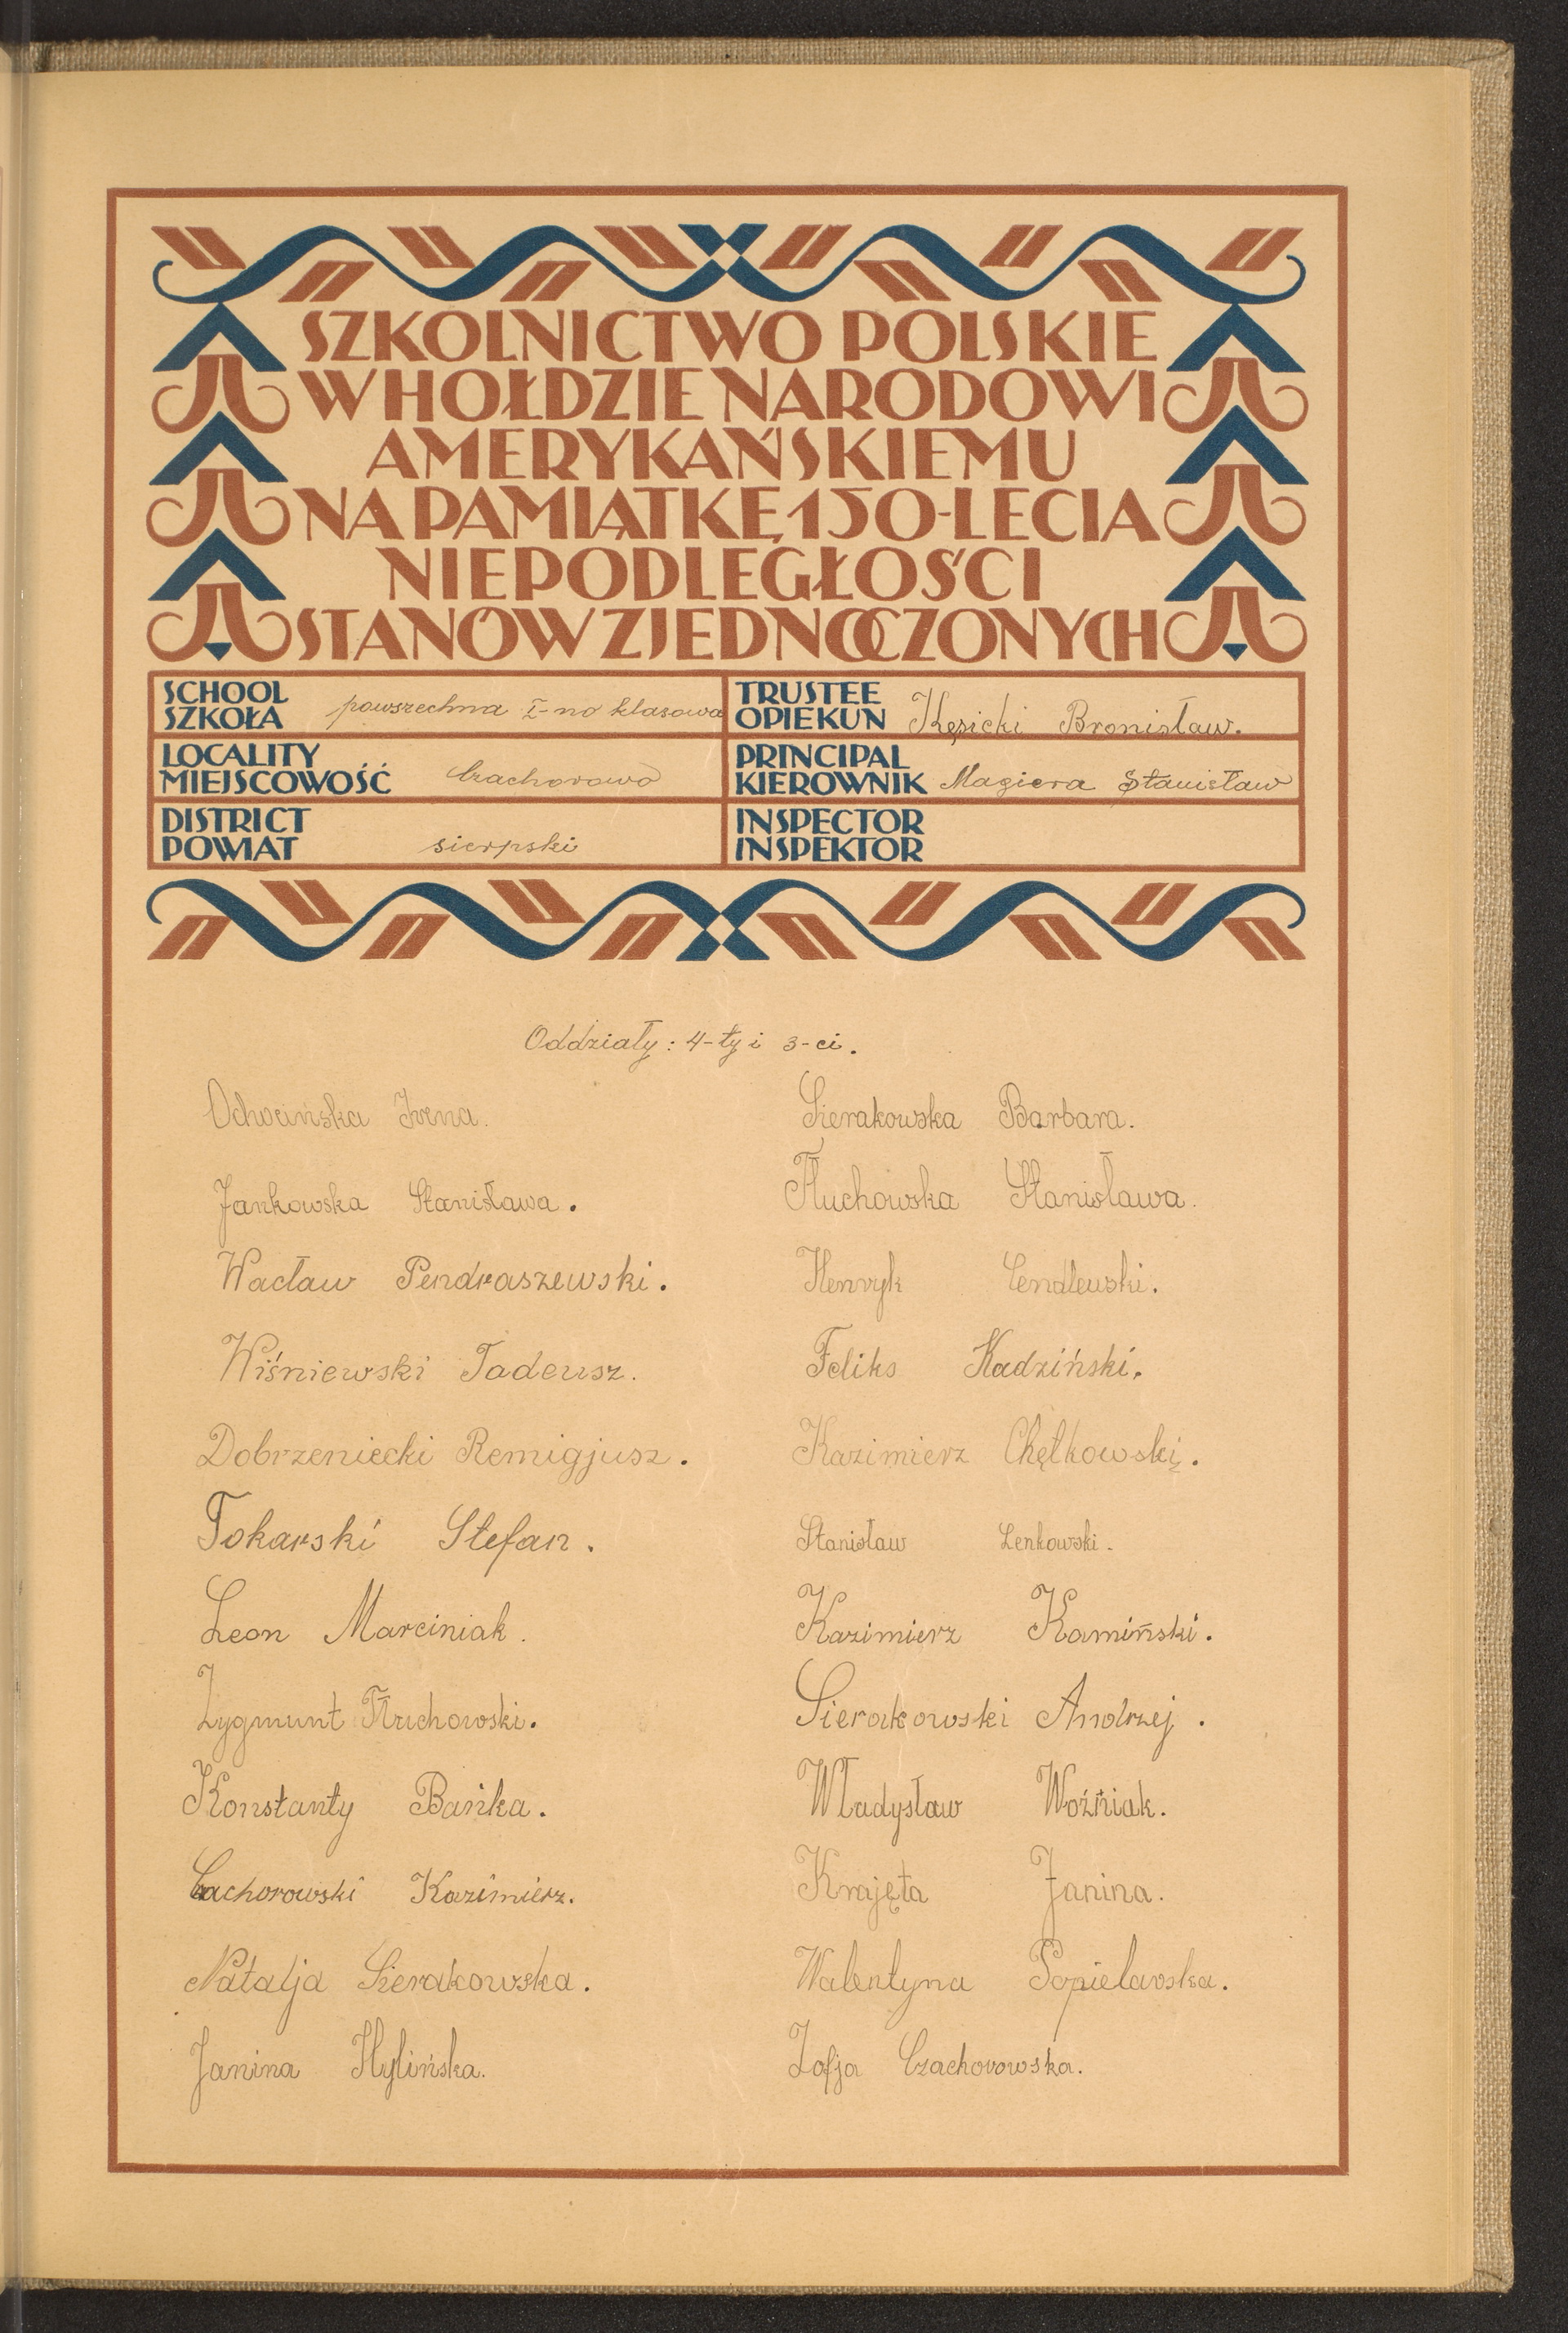 SZKOLNICTWO POLSKIE
W HOŁDZIE NARODOWI
AMERYKAŃSKIEMU
NA PAMIĄTKĘ 150-LECIA
NIEPODLEGŁOŚCI
STANÓW ZJEDNOCZONYCH
SCHOOL
SZKOŁA powszechna I-no klasowa
TRUSTEE
OPIEKUN Kęsicki Bronisław.
LOCALITY
MIEJSCOWOŚĆ Czachorowo
PRINCIPAL
KIEROWNIK Magiera Stanisław
DISTRICT
POWIAT sierpski
INSPECTOR
INSPEKTOR
Oddziały: 4-ty i 3-ci.
Ochocińska Irena.
Jankowska Stanisława.
Wacław Pendraszewski.
Wiśniewski Tadeusz.
Dobrzeniecki Remigjusz.
Tokarski Stefan.
Leon Marciniak.
Zygmunt Tłuchowski.
Konstanty Bańka.
Czachorowski Kazimierz.
Natalja Sierakowska.
Janina Hylińska.
Sierakowska Barbara.
Tłuchowska Stanisława.
Henryk Cendlewski.
Feliks Kadziński.
Kazimierz Chętkowski.
Stanisław Lenkowski.
Kazimierz Kamiński.
Sierakowski Andrzej.
Władysław Woźniak.
Krajęta Janina.
Walentyna Popielarska.
Zofja Czachorowska.